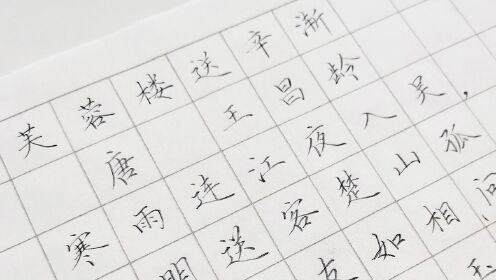 芙蓉楼送辛渐
唐 王昌龄
寒雨连江夜入吴，
明送客楚山孤
友如相问